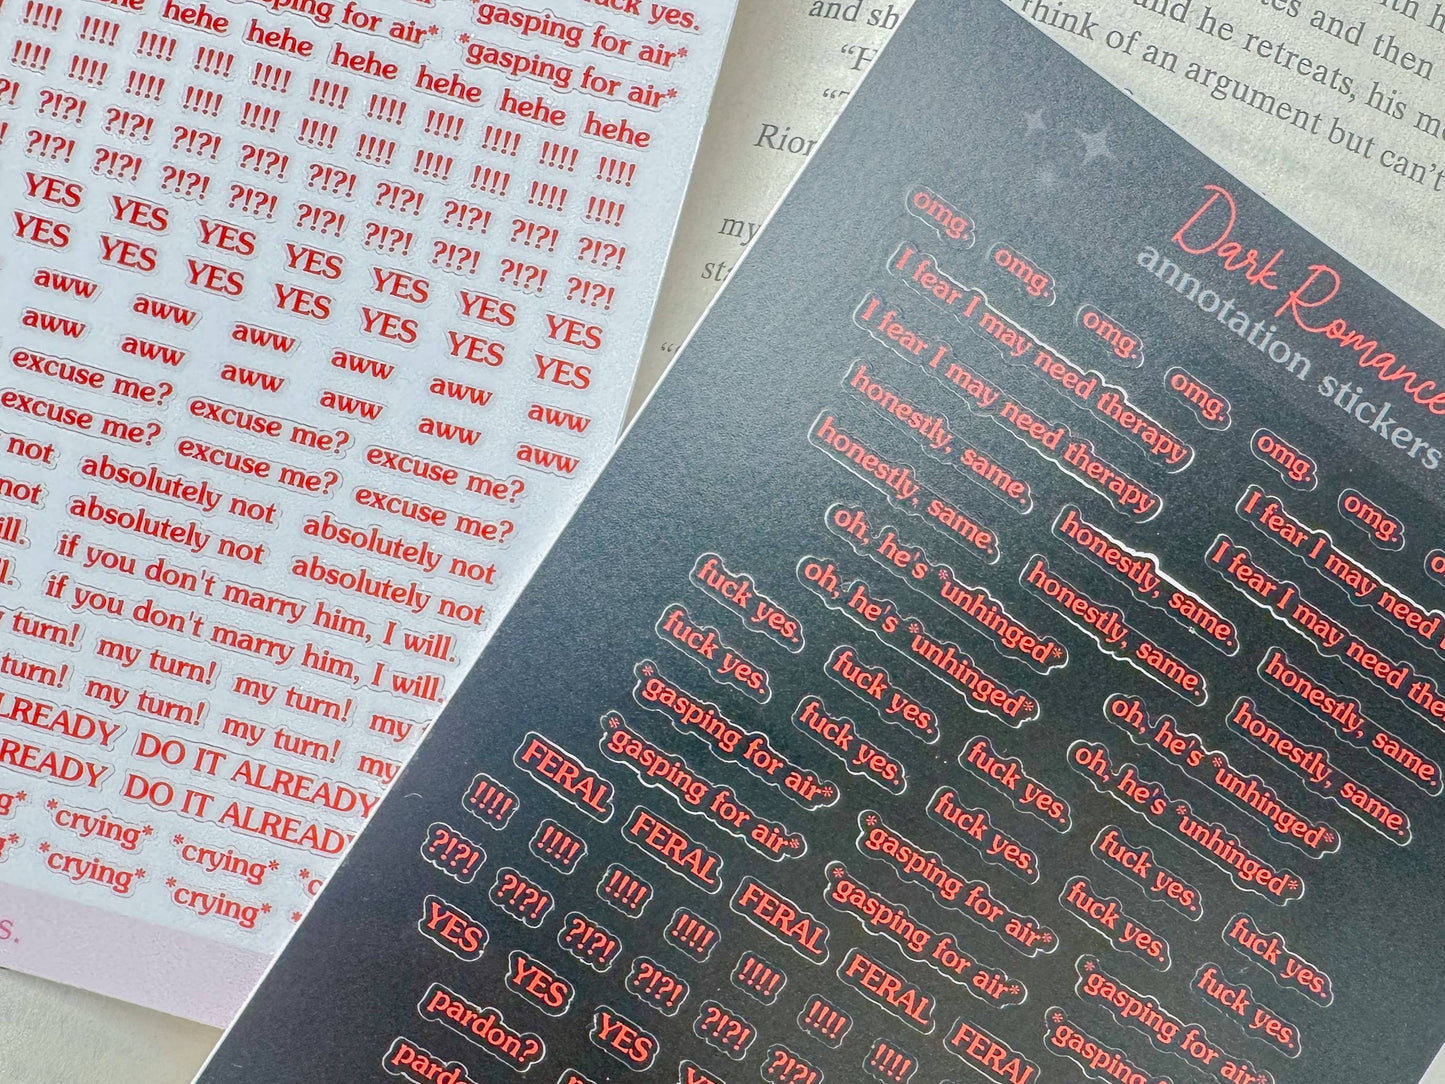 fuck yes.
gasping for air* *gasping for air*
hehe hehe *gasping for air*
hehe hehe hehe hehe hehe
!!!! !!!! !!!! !!!! !!!! !!!! !!!! !!!! !!!! !!!! !!!!
!!!! !!!! !!!! !!!! !!!! !!!! !!!! !!!! !!!! !!!! !!!!
?!?! ?!?! ?!?! ?!?! ?!?! ?!?! ?!?! ?!?! ?!?!
?!?! ?!?! ?!?! ?!?! ?!?! ?!?! ?!?! ?!?! ?!?!
YES YES YES YES YES YES YES
YES YES YES YES YES YES YES
aww aww aww aww aww aww
aww aww aww aww aww aww
excuse me? excuse me? excuse me?
excuse me? excuse me? excuse me?
not absolutely not absolutely not
not absolutely not absolutely not
if you don't marry him, I will.
if you don't marry him, I will.
turn! my turn! my turn! my
turn! my turn! my turn! my
DO IT ALREADY
DO IT ALREADY
*crying* *crying*
*crying* *crying*
s.
and
think of an argument but can't
and he retreats, his
and then
with
my
Dark Romance
annotation stickers
omg. omg. omg. omg. omg. omg.
I fear I may need therapy I fear I may need
I fear I may need therapy I fear I may need the
honestly, same. honestly, same. honestly, same.
honestly, same. honestly, same. honestly, same.
oh, he's *unhinged* oh, he's *unhinged*
oh, he's *unhinged* oh, he's *unhinged*
fuck yes. fuck yes. fuck yes. fuck yes. fuck yes.
fuck yes. fuck yes. fuck yes. fuck yes. fuck yes.
*gasping for air* *gasping for air* *gasping for air*
*gasping for air* *gasping for air* *gasping
FERAL FERAL FERAL FERAL FERAL
!!!! !!!! !!!! !!!! !!!! !!!! !!!!
?!?! ?!?! ?!?! ?!?! ?!?! ?!?!
YES YES YES
pardon?